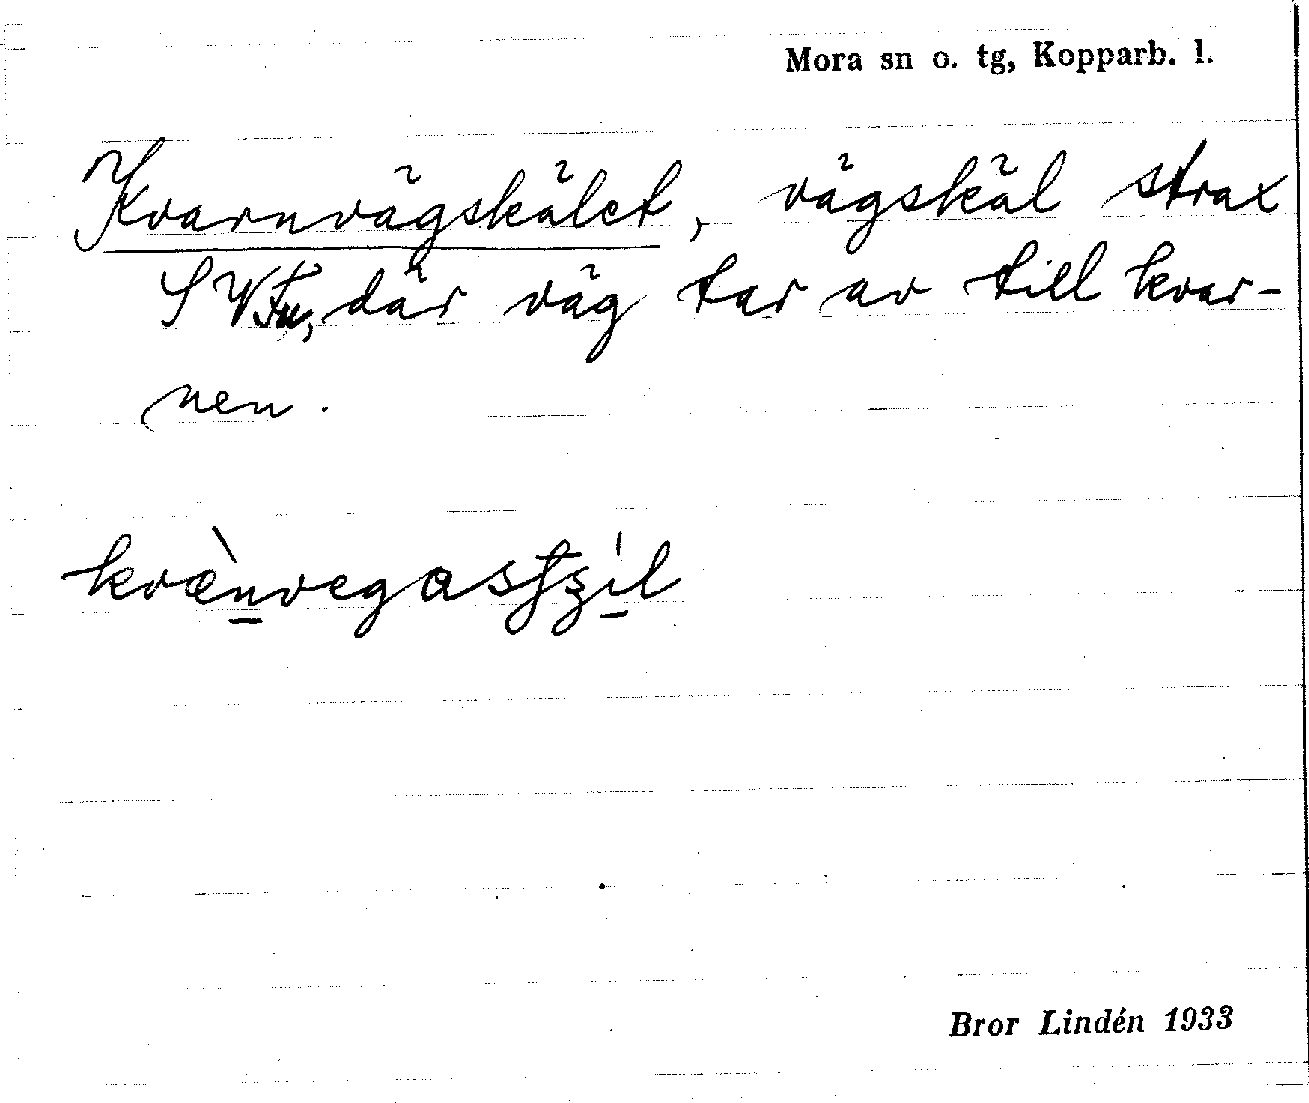 Mora sn o. tg, Kopparb. l.
Kvarnvägskälet, vägskäl strax
S VFu, där väg tar av till kvar-
nen.
kvæ̀nvegasʃʒíl
Bror Lindén 1933